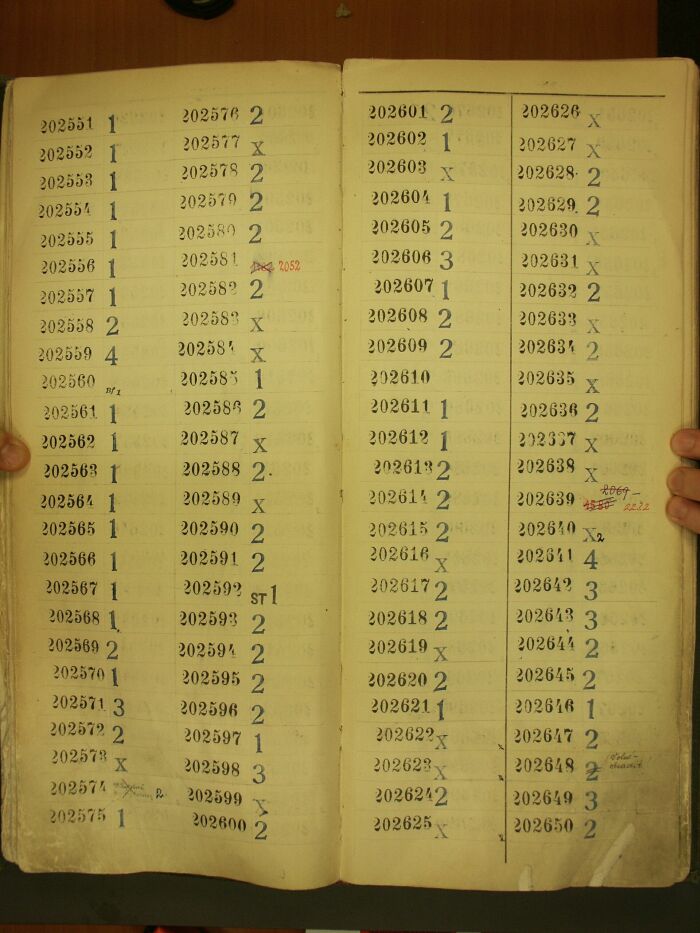 202551 1
202552 1
202553 1
202554 1
202555 1
202556 1
202557 1
202558 2
202559 4
202560 Bf 1
202561 1
202562 1
202563 1
202564 1
202565 1
202566 1
202567 1
202568 1
202569 2
202570 1
202571 3
202572 2
202573 x
202574 2
202575 1
202576 2
202577 x
202578 2
202579 2
202580 2
202581 2052
202582 2
202583 x
202584 x
202585 1
202586 2
202587 x
202588 2.
202589 x
202590 2
202591 2
202592 ST 1
202593 2
202594 2
202595 2
202596 2
202597 1
202598 3
202599 x
202600 2
202601 2
202602 1
202603 x
202604 1
202605 2
202606 3
202607 1
202608 2
202609 2
202610
202611 1
202612 1
202613 2
202614 2
202615 2
202616 x
202617 2
202618 2
202619 x
202620 2
202621 1
202622 x
202623 x
202624 2
202625 x
202626 x
202627 x
202628 2
202629 2
202630 x
202631 x
202632 2
202633 x
202634 2
202635 x
202636 2
202637 x
202638 x
202639 2222
202640 x 2
202641 4
202642 3
202643 3
202644 2
202645 2
202646 1
202647 2
202648 2
202649 3
202650 2